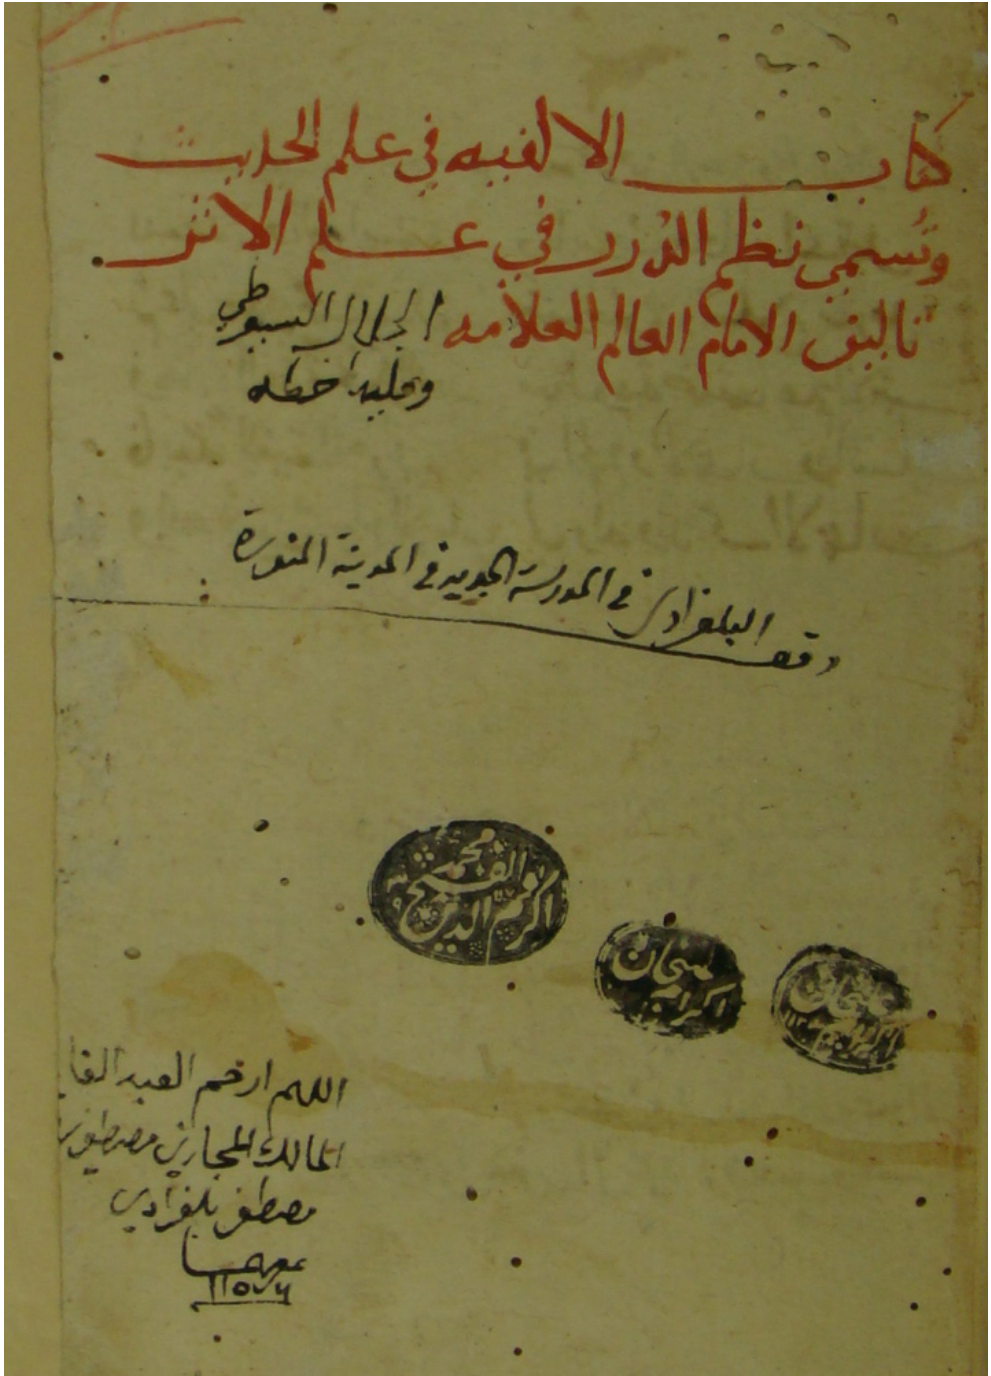 كتاب الالفيه في علم الحديث
وتسمي نظم الدرر في علم الاثر
تاليف الامام العالم العلامه الجلال السيوطي
وعليها خطه
وقف البلغرادى فى المدرسة الجديد فى المدينة المنورة
محمد
اكرم الدين
اللهم ارحم العبد الفا
المالك المجازي
مصطفى بلغرادي